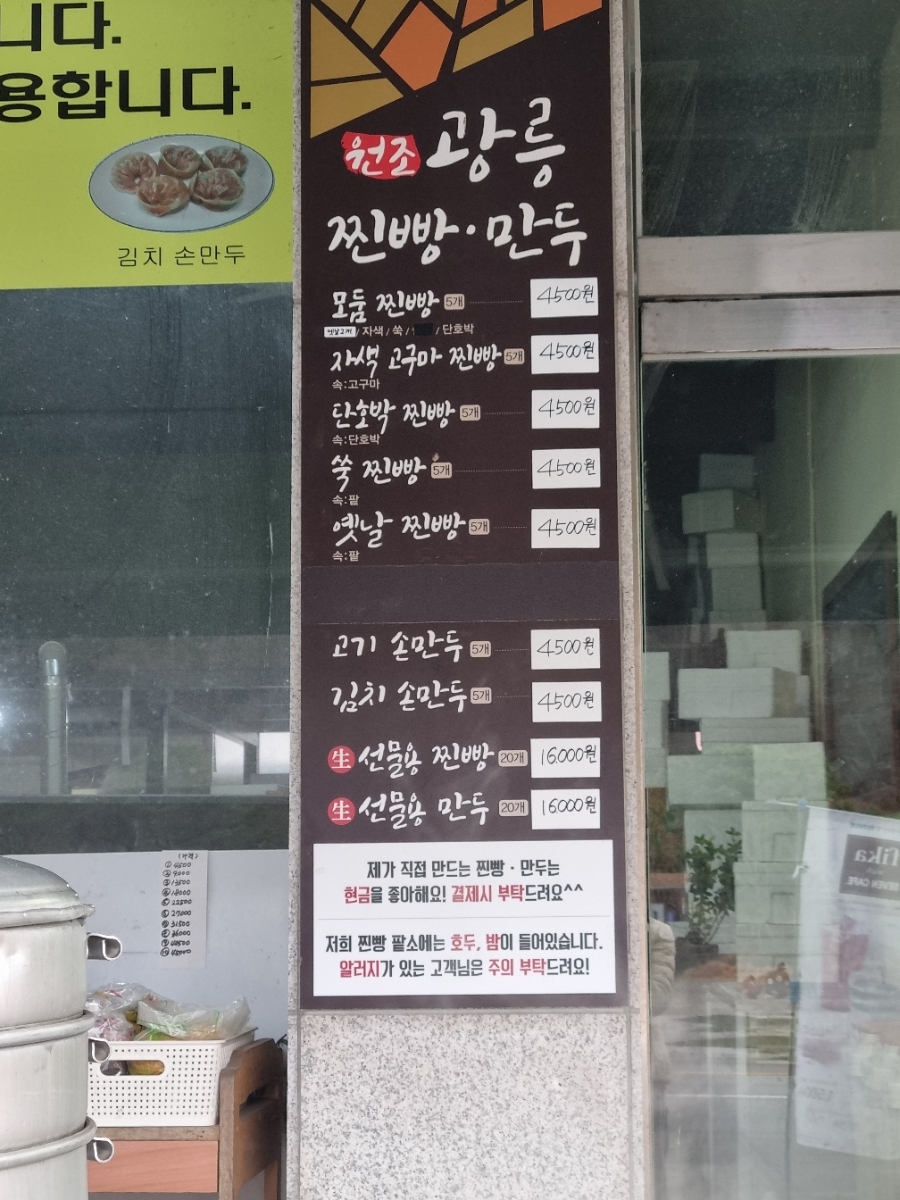 니다.
용합니다.
김치 손만두
원조 광릉
찐빵·만두
모둠 찐빵 5개 4500원
옛날고매 / 자색 / 쑥 / / 단호박
자색 고구마 찐빵 5개 4500원
속:고구마
단호박 찐빵 5개 4500원
속:단호박
쑥 찐빵 5개 4500원
속:팥
옛날 찐빵 5개 4500원
속:팥
고기 손만두 5개 4500원
김치 손만두 5개 4500원
生 선물용 찐빵 20개 16000원
生 선물용 만두 20개 16000원
제가 직접 만드는 찐빵·만두는
현금을 좋아해요! 결제시 부탁드려요^^
저희 찐빵 팥소에는 호두, 밤이 들어있습니다.
알러지가 있는 고객님은 주의 부탁드려요!
(가격)
① 4500
② 9000
③ 13500
④ 18000
⑤ 22500
⑥ 27000
⑦ 31500
⑧ 36000
⑨ 40500
⑩ 45000
fika
SEVEN CAFE